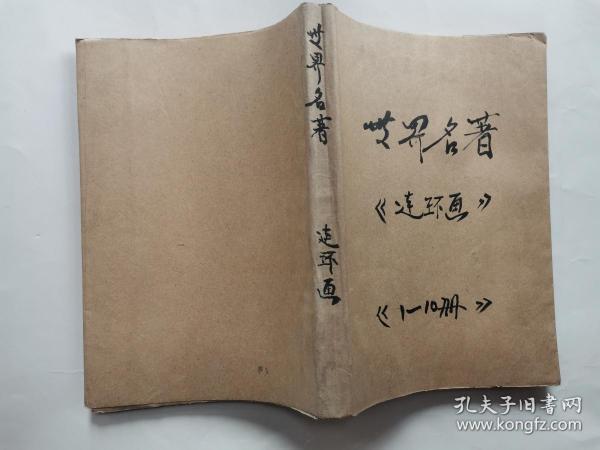 世界名著
《连环画》
《1—10册》
世界名著 连环画
孔夫子旧书网
www.kongfz.com